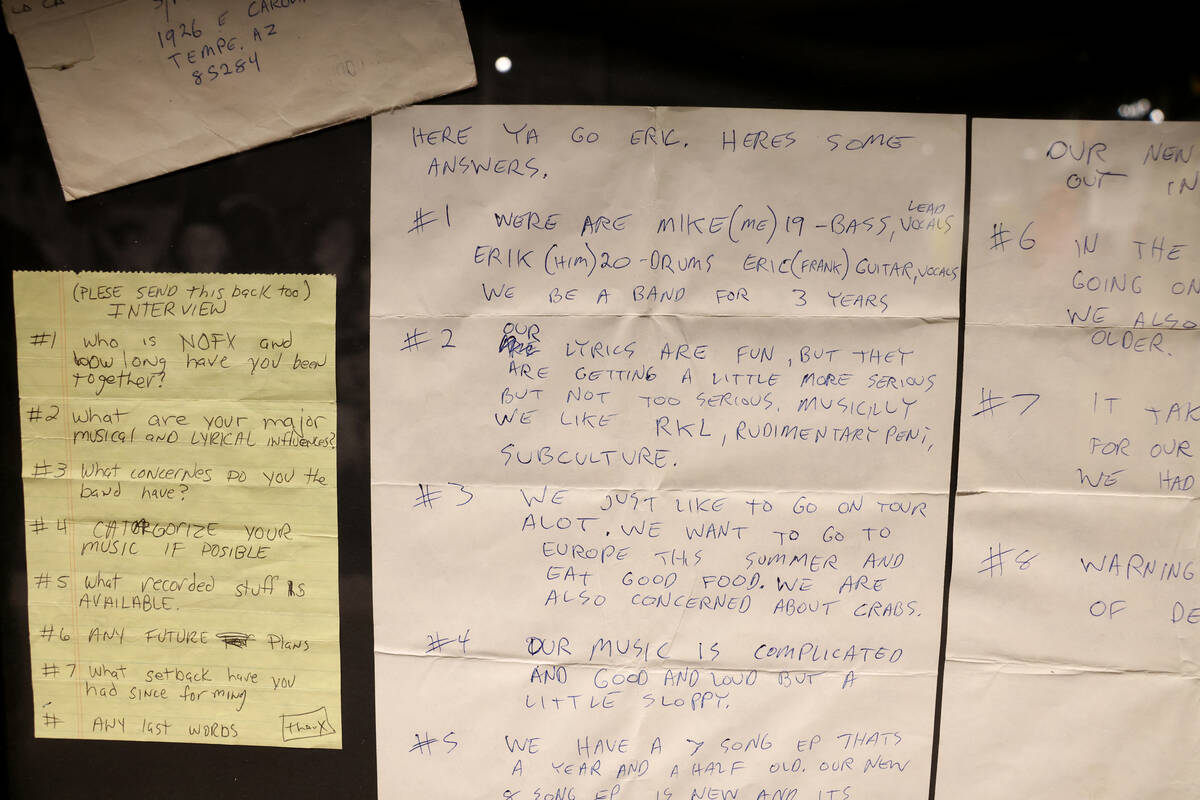 1926 E
TEMPE, AZ
85284
(PLESE SEND this back too)
INTERVIEW
#1 Who is NOFX and
how long have you been
together?
#2 What are your major
musical and LYRICAL influences?
#3 What concernes DO you the
band have?
#4 CATORGORIZE YOUR
MUSIC IF POSIBLE
#5 What recorded stuff is
AVAILABLE.
#6 ANY FUTURE Plans
#7 What setback have you
had since forming
# ANY last WORDS
thanx
HERE YA GO ERIC. HERES SOME
ANSWERS.
#1 WERE ARE MIKE (ME) 19 - BASS, LEAD VOCALS
ERIK (HIM) 20 - DRUMS ERIC (FRANK) GUITAR, VOCALS
WE BE A BAND FOR 3 YEARS
#2 OUR LYRICS ARE FUN, BUT THEY
ARE GETTING A LITTLE MORE SERIOUS
BUT NOT TOO SERIOUS. MUSICILLY
WE LIKE RKL, RUDIMENTARY PENI,
SUBCULTURE.
#3 WE JUST LIKE TO GO ON TOUR
ALOT. WE WANT TO GO TO
EUROPE THIS SUMMER AND
EAT GOOD FOOD. WE ARE
ALSO CONCERNED ABOUT CRABS.
#4 OUR MUSIC IS COMPLICATED
AND GOOD AND LOUD BUT A
LITTLE SLOPPY.
#5 WE HAVE A 7 SONG EP THATS
A YEAR AND A HALF OLD. OUR NEW
8 SONG EP IS NEW AND ITS
OUR NEW
OUT IN
#6 IN THE
GOING ON
WE ALSO
OLDER.
#7 IT TAK
FOR OUR
WE HAD
#8 WARNING
OF DE